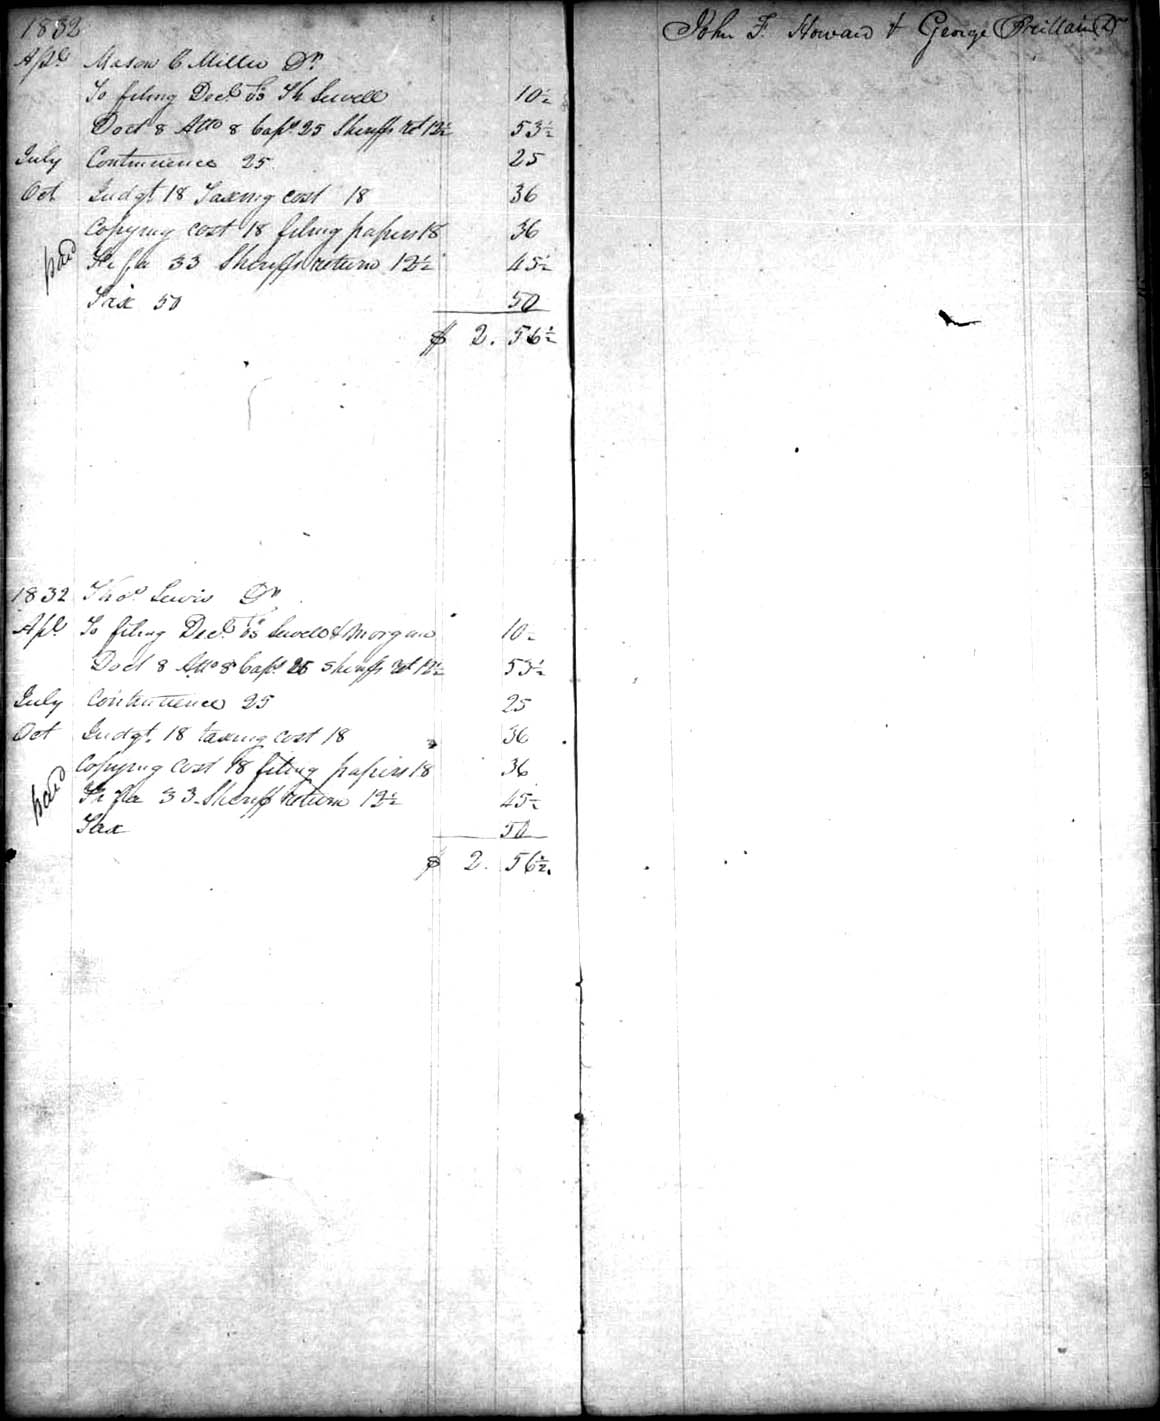 1832
Apl. Mason C Miller Dr
To filing Decl. vs Th Sewell 10½
Docl 8 Atto 8 Caps. 25 Sheriffs ret 12½ 53½
July Continuence 25 25
Oct Judgt 18 Taxing cost 18 36
Copying cost 18 filing papers 18 36
paid Fi fa 33 Sheriffs return 12½ 45½
Tax 50 50
$ 2. 56½
1832 Thos Lewis Dr
Apl. To filing Decl. vs Sewell & Morgan 10½
Docl 8 Atto 8 Caps. 25 Sheriffs ret 12½ 53½
July Continuence 25 25
Oct Judgt. 18 taxing cost 18 36
Copying cost 18 filing papers 18 36
paid Fi fa 33 Sheriff return 12½ 45½
Tax 50
$ 2. 56½
John F. Howard & George Dr